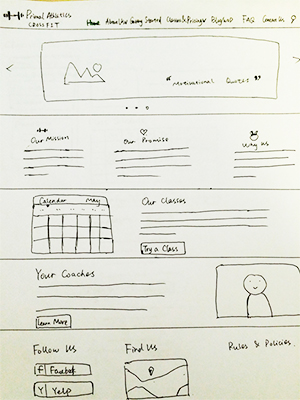 Primal Athletics
CROSSFIT
Home About Us Getting Started Classes & Pricing Blog FAQ Contact Us
" Motivational Quotes "
Our Mission
Our Promise
Why Us
Calendar May
Our Classes
Try a Class
Your Coaches
Learn More
Follow Us
f Facebook
Y Yelp
Find Us
Rules & Policies